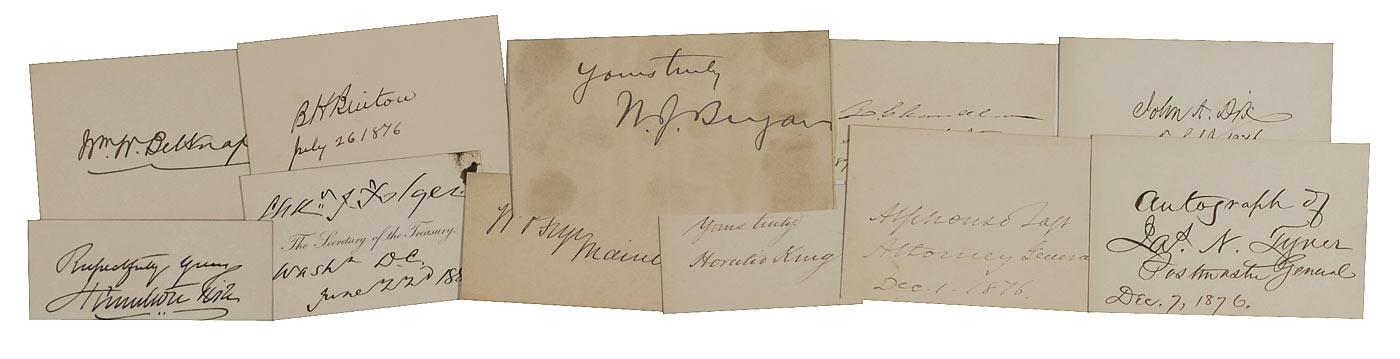 Wm. W. Belknap
B H Brinton
July 26 1876
Yours truly
W. J. Bryan
John A. Dix
Respectfully Yours
Hamilton Fish
Chas. J. Folger
The Secretary of the Treasury.
Washn D.C.
June 22d 188
Maine
Yours truly
Horatio King
Alphonso Taft
Attorney General
Dec. 1. 1876.
Autograph of
Jas. N. Tyner
Postmaster General
Dec. 7, 1876.